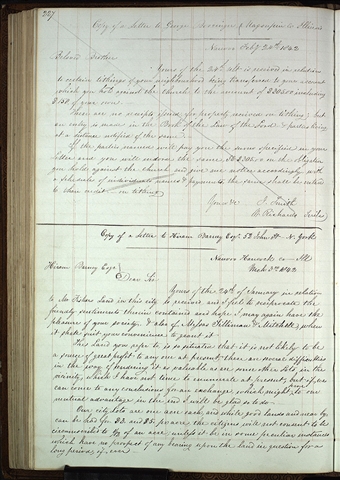 227
Copy of a Letter to
Nauvoo Feby 24th 1842
Beloved Brother
Yours of the 24th ult. is received in relation
to certain tithings of your neighborhood being transferred to your account
which you hold against the Church to the amount of $303.50 including
of your own.
There are no receipts for property received on tithing; but
an entry is made in the Book of the Law of the Lord & parties living
at a distance notified of the same.
If the parties named will pay you the sums specified in your
letter and you will endorse the same $303.50 on the Obligation
you hold against the Church and give me notice accordingly with
a schedule of individual names & payments, the same shall be entered
to their credit on tithing
Yours &c J. Smith
W. Richards Scribe
Copy of a Letter to Hiram Barney Esqr. 52 John St. N. York
Nauvoo Hancock co— Ills
March 3rd 1842
Hiram Barney Esqr.
Dear Sir.
Yours of the 24th of January in relation
to Lands in this city is received and I felt to reciprocate the
friendly sentiments therein contained and hope I may again have the
pleasure of your society, & also of Messrs Tillinson & Mitchell, when
it shall suit your convenience to grant it.
This Land you refer to is so situated that it is not likely to be
a source of great profit to any one at present, there are several difficulties
in the way of rendering it as valuable as are some other lots, in the
vicinity, which I have not time to enumerate at present; but if, we
can come to any conclusions for an exchange, which might be for our
mutual advantage in the end I will be glad so to do.
Our city lots are one acre each, and while good lands and near by
can be had for $3. and $5. pr acre the citizens will not consent to be
circumscribed to 1/4 of an acre, unless it be in some peculiar instances
which have no prospect of any bearing upon the land in question for a
long period, if ever.